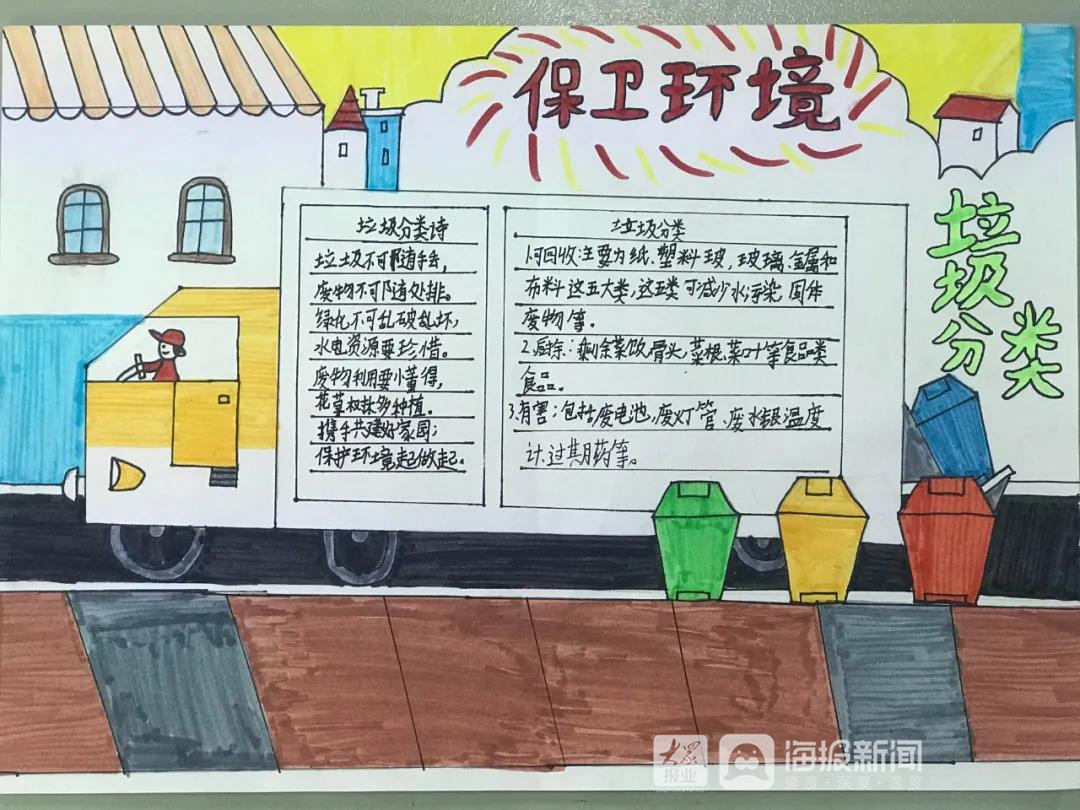 保卫环境
垃圾分类
垃圾分类诗
垃圾不可随手丢,
废物不可随处排。
绿化不可乱破乱坏,
水电资源要珍惜。
废物利用要懂得,
花草权抹多种植.
携手共建好家园;
保护环境起做起。
垃圾分类
1.可回收:主要为纸、塑料玻,玻璃、金属和
布料这五大类,这五类可减少水污染 固体
废物等。
2.厨余:剩余菜饭,骨头,菜根、菜叶等食品类
食品。
3.有害:包括废电池,废灯管、废水银温度
计、过期药等。
大众报业
海报新闻
速度·深度·温度